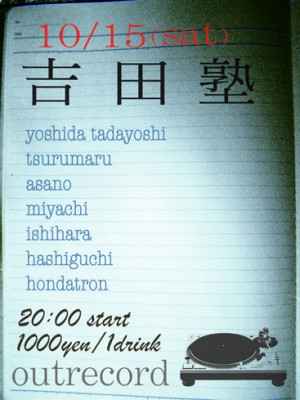 10/15(sat)
吉田塾
yoshida tadayoshi
tsurumaru
asano
miyachi
ishihara
hashiguchi
hondatron
20:00 start
1000yen/1drink
outrecord